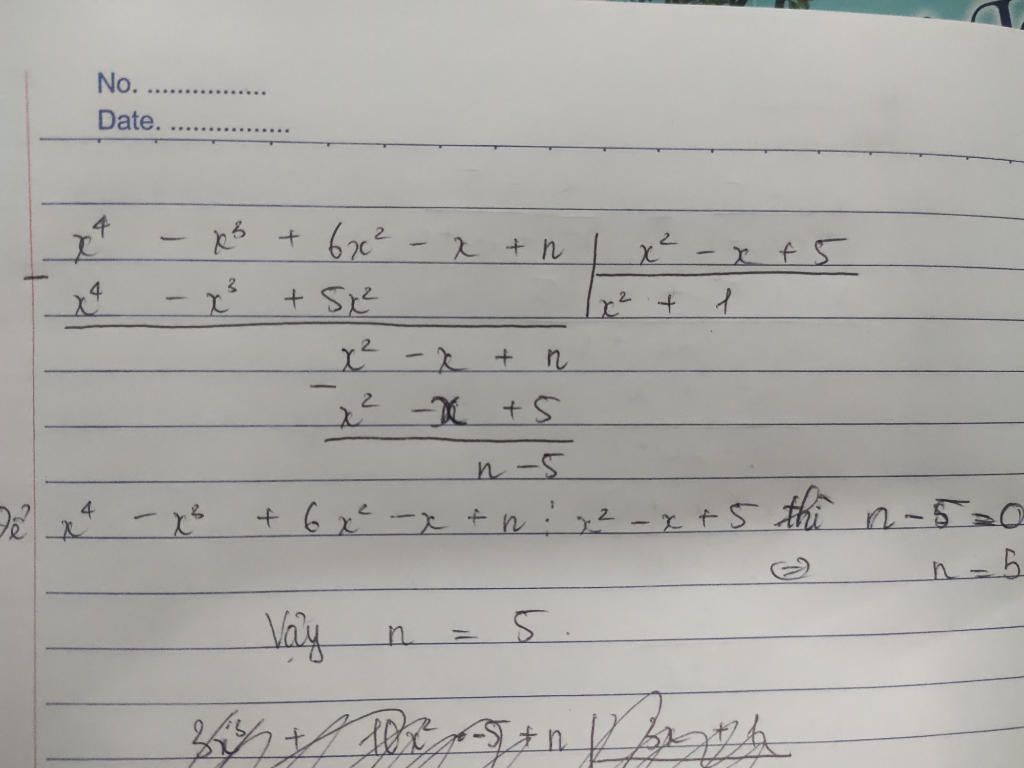 No. ................
Date. ................
x⁴ - x³ + 6x² - x + n | x² - x + 5
- x⁴ - x³ + 5x² | x² + 1
x² - x + n
- x² - x + 5
n - 5
Để x⁴ - x³ + 6x² - x + n ⋮ x² - x + 5 thì n - 5 = 0
⇔ n = 5
Vậy n = 5.
3x³ + 10x² - 5 + n | 3x + 1